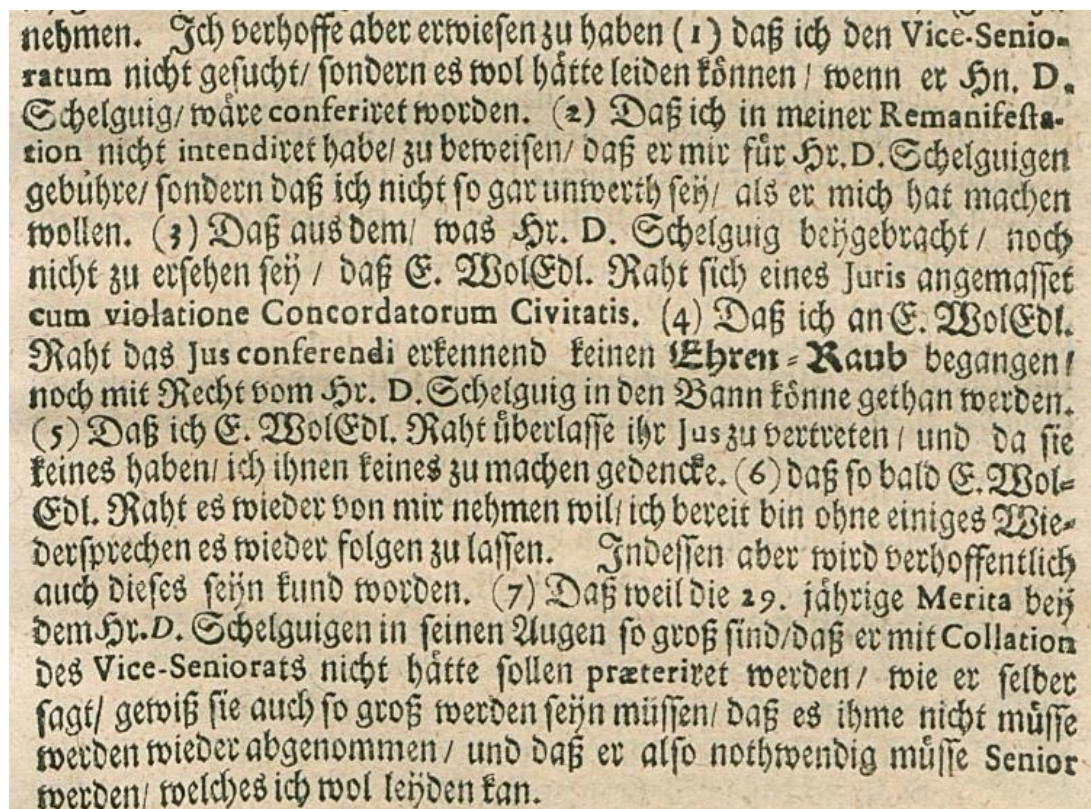 nehmen. Ich verhoffe aber erwiesen zu haben (1) daß ich den Vice-Senio-
ratum nicht gesucht/ sondern es wol hätte leiden können / wenn er Hn. D.
Schelguig/ wäre conferiret worden. (2) Daß ich in meiner Remanifesta-
tion nicht intendiret habe/ zu beweisen/ daß er mir für Hr. D. Schelguigen
gebühre/ sondern daß ich nicht so gar unwerth seÿ/ als er mich hat machen
wollen. (3) Daß aus dem/ was Hr. D. Schelguig beÿgebracht / noch
nicht zu ersehen seÿ / daß E. WolEdl. Raht sich eines Juris angemasset
cum violatione Concordatorum Civitatis. (4) Daß ich an E. WolEdl.
Raht das Jus conferendi erkennend keinen Ehren-Raub begangen/
noch mit Recht vom Hr. D. Schelguig in den Bann könne gethan werden.
(5) Daß ich E. WolEdl. Raht überlasse ihr Jus zu vertreten / und da sie
keines haben/ ich ihnen keines zu machen gedencke. (6) daß so bald E. Wol-
Edl. Raht es wieder von mir nehmen wil/ ich bereit bin ohne einiges Wie-
dersprechen es wieder folgen zu lassen. Indessen aber wird verhoffentlich
auch dieses seÿn kund worden. (7) Daß weil die 29. jährige Merita beÿ
dem Hr. D. Schelguigen in seinen Augen so groß sind/ daß er mit Collation
des Vice-Seniorats nicht hätte sollen præteriret werden / wie er selber
sagt/ gewiß sie auch so groß werden seÿn müssen/ daß es ihme nicht müsse
werden wieder abgenommen / und daß er also nothwendig müsse Senior
werden/ welches ich wol leÿden kan.